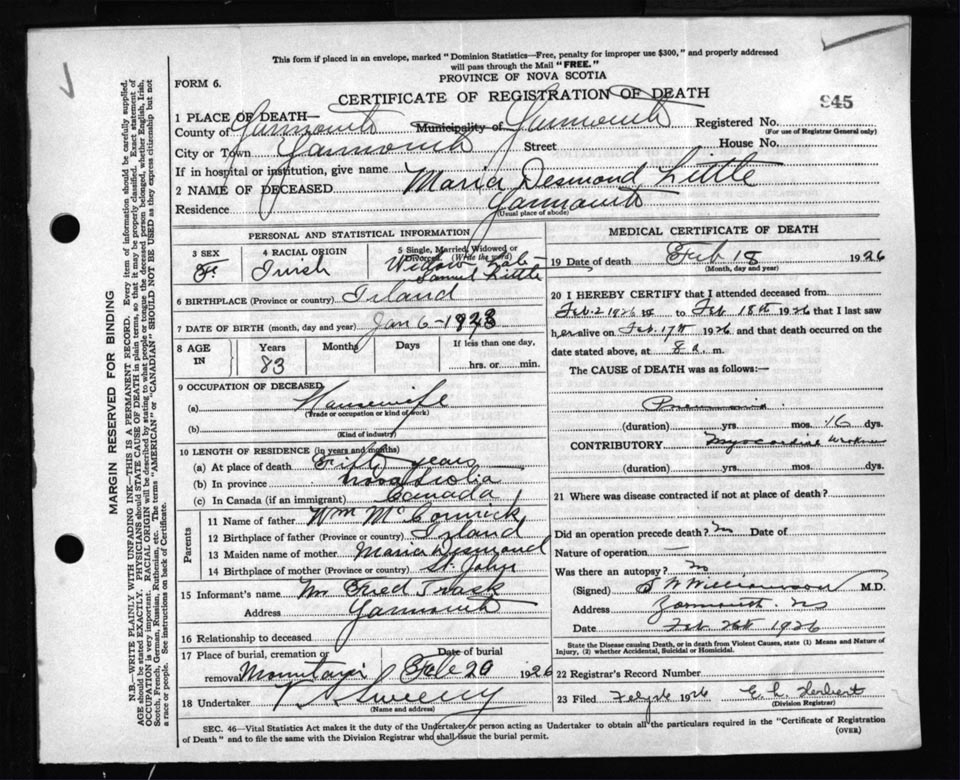 This form if placed in an envelope, marked "Dominion Statistics—Free, penalty for improper use $300," and properly addressed
will pass through the Mail "FREE."
PROVINCE OF NOVA SCOTIA
FORM 6.
CERTIFICATE OF REGISTRATION OF DEATH
945
1 PLACE OF DEATH—
County of Yarmouth Municipality of Yarmouth Registered No.
(For use of Registrar General only)
City or Town Yarmouth Street House No.
If in hospital or institution, give name
2 NAME OF DECEASED Maria Desmond Little
Residence Yarmouth
(Usual place of abode)
PERSONAL AND STATISTICAL INFORMATION
3 SEX F.
4 RACIAL ORIGIN Irish
5 Single, Married, Widowed or Divorced. (Write the word) Widow Samuel Little
6 BIRTHPLACE (Province or country) Island
7 DATE OF BIRTH (month, day and year) Jan 6-
8 AGE IN Years 83 Months Days If less than one day, hrs. or min.
9 OCCUPATION OF DECEASED
(a) Housewife
(Trade or occupation or kind of work)
(b)
(Kind of industry)
10 LENGTH OF RESIDENCE (in years and months)
(a) At place of death Fifty years
(b) In province Nova Scotia
(c) In Canada (if an immigrant) Canada
Parents
11 Name of father Wm McCormick
12 Birthplace of father (Province or country) Island
13 Maiden name of mother Maria Desmond
14 Birthplace of mother (Province or country) St. John
15 Informant's name Fred
Address Yarmouth
16 Relationship to deceased
17 Place of burial, cremation or removal Mountain Date of burial Feb 20 1926
18 Undertaker V Sweeny
(Name and address)
MEDICAL CERTIFICATE OF DEATH
19 Date of death Feb 18 1926
(Month, day and year)
20 I HEREBY CERTIFY that I attended deceased from
Feb. 2 1926 to Feb 18th 1926 that I last saw
her alive on Feb. 17th 1926 and that death occurred on the
date stated above, at 8 a. m.
The CAUSE of DEATH was as follows:—
Pneumonia
(duration) yrs. mos. 16 dys.
CONTRIBUTORY Myocardial
(duration) yrs. mos. dys.
21 Where was disease contracted if not at place of death?
Did an operation precede death? No Date of
Nature of operation —
Was there an autopsy? No
(Signed) S W Williamson M.D.
Address Yarmouth. NS
Date Feb 26th 1926
State the Disease causing Death, or in death from Violent Causes, state (1) Means and Nature of
Injury, (2) whether Accidental, Suicidal or Homicidal.
22 Registrar's Record Number
23 Filed 1926 E. L. Herbert
(Division Registrar)
SEC. 46—Vital Statistics Act makes it the duty of the Undertaker or person acting as Undertaker to obtain all the particulars required in the "Certificate of Registration
of Death" and to file the same with the Division Registrar who shall issue the burial permit.
(OVER)
MARGIN RESERVED FOR BINDING
N.B.—WRITE PLAINLY WITH UNFADING INK—THIS IS A PERMANENT RECORD. Every item of information should be carefully supplied.
AGE should be stated EXACTLY. PHYSICIANS should STATE CAUSE OF DEATH in plain terms, so that it may be properly classified. Exact statement of
OCCUPATION is very important. RACIAL ORIGIN will be described by stating to what people or tongue the deceased person belonged, whether English, Irish,
Scotch, French, German, Russian, Ruthenian, etc. The terms "AMERICAN" or "CANADIAN" SHOULD NOT BE USED as they express citizenship but not
a race or people. See instructions on back of Certificate.